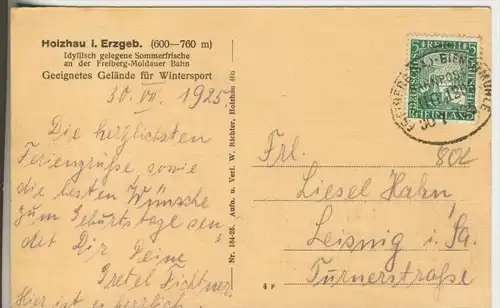 Holzhau i. Erzgeb. (600—760 m)
Idyllisch gelegene Sommerfrische
an der Freiberg-Moldauer Bahn
Geeignetes Gelände für Wintersport
30. VII. 1925
Die herzlichsten
Feriengrüße, sowie
die besten Wünsche
zum Geburtstage sen-
det Dir Deine
Gretel Fichtner.
Hier ist es herrlich
Nr. 184-25. Aufn. u. Verl. W. Richter, Holzhau
4 F
5
802
Frl.
Liesel Hahn,
Leisnig i. Sa.
Turnerstraße